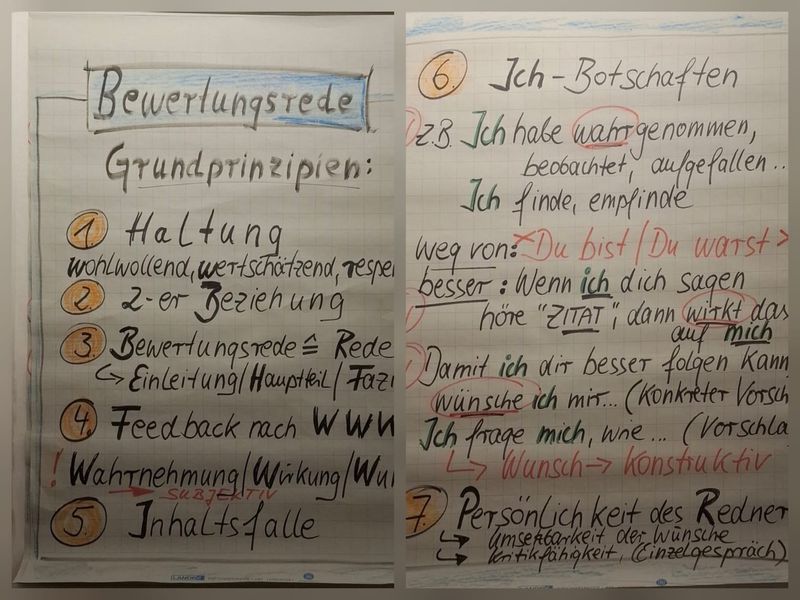 Bewertungsrede
Grundprinzipien:
1 Haltung
wohlwollend, wertschätzend, respe
2 2-er Beziehung
3. Bewertungsrede ≙ Rede
↳ Einleitung/Hauptteil/Fazi
4. Feedback nach WWW
! Wahrnehmung/Wirkung/Wu
→ SUBJEKTIV
5. Inhaltsfalle
LANDRÉ
6. Ich-Botschaften
z.B. Ich habe wahrgenommen,
beobachtet, aufgefallen..
Ich finde, empfinde
weg von: Du bist/Du warst >
besser: Wenn ich dich sagen
höre "ZITAT", dann wirkt das
auf mich
Damit ich dir besser folgen kann
wünsche ich mir... (Konkreter Vorsch
Ich frage mich, wie... (Vorschla
↳ Wunsch → Konstruktiv
7. Persönlichkeit des Redner
↳ Umsetbarkeit der Wünsche
↳ Kritikfähigkeit, (Einzelgespräch)